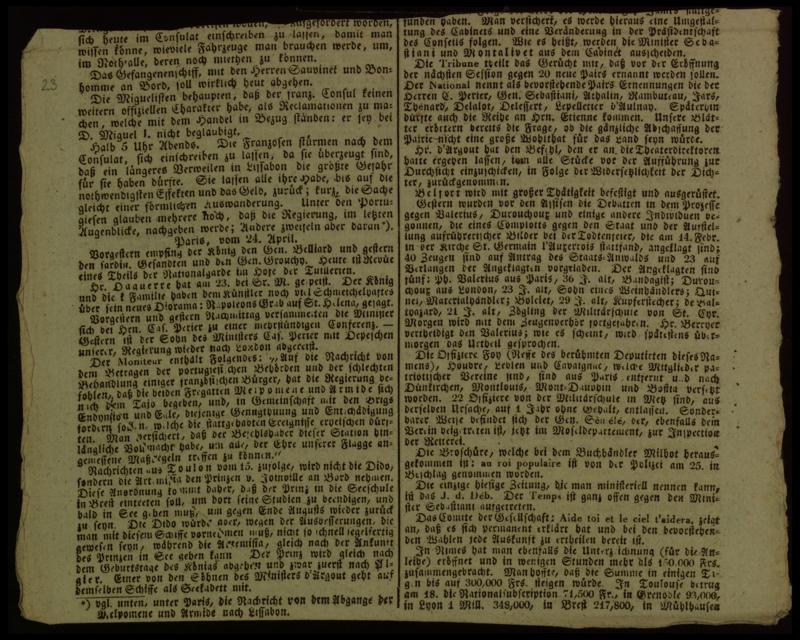 sich heute im Consulat einschreiben zu lassen, damit man
wissen könne, wieviele Fahrzeuge man brauchen werde, um,
im Nothfalle, deren noch miethen zu können.
Das Gefangenenschiff, mit den Herren Sauvinet und Bon-
homme an Bord, soll wirklich heut abgehen.
Die Miguelisten behaupten, daß der franz. Consul keinen
weitern offiziellen Charakter habe, als Reclamationen zu ma-
chen, welche mit dem Handel in Bezug ständen: er sey bei
D. Miguel I. nicht beglaubigt.
Halb 5 Uhr Abends. Die Franzosen stürmen nach dem
Consulat, sich einschreiben zu lassen, da sie überzeugt sind,
daß ein längeres Verweilen in Lissabon die größte Gefahr
für sie haben dürfte. Sie lassen alle ihre Habe, bis auf die
nothwendigsten Effekten und das Geld, zurück; kurz, die Sache
gleicht einer förmlichen Auswanderung. Unter den Portu-
giesen glauben mehrere noch, daß die Regierung, im letzten
Augenblicke, nachgeben werde; Andere zweifeln aber daran*).
Paris, vom 24. April.
Vorgestern empfing der König den Gen. Belliard und gestern
den sardin. Gesandten und den Gen. Grouchy. Heute ist Revüe
eines Theils der Nationalgarde im Hofe der Tuilerien.
Hr. Daguerre hat am 23. bei Sr. M. gespeist. Der König
und die k. Familie haben dem Künstler noch viel Schmeichelhaftes
über sein neues Diorama: Napoleons Grab auf St. Helena, gesagt.
Vorgestern und gestern Nachmittag versammelten die Minister
sich bei Hrn. Cas. Perier zu einer mehrstündigen Conferenz. —
Gestern ist der Sohn des Ministers Cas. Perier mit Depeschen
unserer Regierung wieder nach London abgereist.
Der Moniteur enthält Folgendes: „Auf die Nachricht von
dem Betragen der portugiesischen Behörden und der schlechten
Behandlung einiger französischen Bürger, hat die Regierung be-
fohlen, daß die beiden Fregatten Melpomene und Armide sich
nach dem Tajo begeben, und, in Gemeinschaft mit den Brigs
Endymion und Egle, diejenige Genugthuung und Entschädigung
fordern sollen, welche die stattgehabten Ereignisse erheischen dürf-
ten. Man versichert, daß der Befehlshaber dieser Station hin-
längliche Vollmacht habe, um alle, der Ehre unserer Flagge an-
gemessene Maßregeln treffen zu können.“
Nachrichten aus Toulon vom 15. zufolge, wird nicht die Dido,
sondern die Artemisia den Prinzen v. Joinville an Bord nehmen.
Diese Anordnung kommt daher, daß der Prinz in die Seeschule
in Brest eintreten soll, um dort seine Studien zu beendigen, und
bald in See gehen muß, um gegen Ende Augusts wieder zurück
zu seyn. Die Dido würde aber, wegen der Ausbesserungen, die
man mit diesem Schiffe vornehmen muß, nicht so schnell segelfertig
gewesen seyn, während die Artemisia, gleich nach der Ankunft
des Prinzen in See gehen kann. Der Prinz wird gleich nach
dem Geburtstage des Königs abgehen und zwar zuerst nach Al-
gier. Einer von den Söhnen des Ministers d'Argout geht auf
demselben Schiffe als Seekadett mit.
*) vgl. unten, unter Paris, die Nachricht von dem Abgange der
Melpomene und Armide nach Lissabon.
funden haben. Man versichert, es werde hieraus eine Umgestal-
tung des Cabinets und eine Veränderung in der Präsidentschaft
des Conseils folgen. Wie es heißt, werden die Minister Seba-
stiani und Montalivet aus dem Cabinet ausscheiden.
Die Tribune theilt das Gerücht mit, daß vor der Eröffnung
der nächsten Session gegen 20 neue Pairs ernannt werden sollen.
Der National nennt als bevorstehende Pairs Ernennungen die der
Herren C. Perier, Gen. Sebastiani, Athalin, Rambuteau, Jars,
Thénard, Delalot, Delessert, Lepelletier d'Aulnay. Späterhin
dürfte auch die Reihe an Hrn. Etienne kommen. Unsere Blät-
ter erörtern bereits die Frage, ob die gänzliche Abschaffung der
Pairie nicht eine große Wohlthat für das Land seyn würde.
Hr. d'Argout hat den Befehl, den er an die Theaterdirektoren
hatte ergehen lassen, ihm alle Stücke vor der Aufführung zur
Durchsicht einzuschicken, in Folge der Widersetzlichkeit der Dich-
ter, zurückgenommen.
Belfort wird mit großer Thätigkeit befestigt und ausgerüstet.
Gestern wurden vor den Assisen die Debatten in dem Prozesse
gegen Valerius, Durouchouy und einige andere Individuen be-
gonnen, die eines Complotts gegen den Staat und der Aufstel-
lung aufrührerischer Bilder bei der Todtenfeier, die am 14. Febr.
in der Kirche St. Germain l'Auxerrois stattfand, angeklagt sind;
40 Zeugen sind auf Antrag des Staats-Anwalds und 23 auf
Verlangen der Angeklagten vorgeladen. Der Angeklagten sind
fünf: Ph. Valerius aus Paris, 36 J. alt, Bandagist; Durou-
chouy aus London, 23 J. alt, Sohn eines Weinhändlers; Qui-
nel, Materialhändler; Boblet, 29 J. alt, Kupferstecher;
21 J. alt, Zögling der Militärschule von St. Cyr.
Morgen wird mit dem Zeugenverhör fortgefahren. Hr. Berryer
vertheidigt den Valerius; wie es scheint, wird spätestens über-
morgen das Urtheil gesprochen.
Die Offiziere Foy (Neffe des berühmten Deputirten dieses Na-
mens), Houdre, Leblen und Cavaignac, welche Mitglieder pa-
triotischer Vereine sind, sind aus Paris entfernt und nach
Dünkirchen, Montlouis, Mont-Dauphin und Bastia versetzt
worden. 22 Offiziere von der Militärschule in Metz sind, aus
derselben Ursache, auf 1 Jahr ohne Gehalt, entlassen. Sonder-
barer Weise befindet sich der Gen. Sémélé, der, ebenfalls dem
Verein beigetreten ist, jetzt im Moseldepartement, zur Inspection
der Reiterei.
Die Broschüre, welche bei dem Buchhändler Milbot heraus-
gekommen ist: au roi populaire ist von der Polizei am 25. in
Beschlag genommen worden.
Die einzige hiesige Zeitung, die man ministeriell nennen kann,
ist das J. d. Déb. Der Temps ist ganz offen gegen den Mini-
ster Sebastiani aufgetreten.
Das Comite der Gesellschaft: Aide toi et le ciel t'aidera, zeigt
an, daß es sich permanent erklärt hat und bei den bevorstehen-
den Wahlen jede Auskunft zu ertheilen bereit ist.
In Nimes hat man ebenfalls die Unterzeichnung (für die An-
leihe) eröffnet und in wenigen Stunden mehr als 150,000 Frs.
zusammengebracht. Man hofft, daß die Summe in einigen Ta-
gen bis auf 300,000 Frs. steigen würde. In Toulouse betrug
am 18. die Nationalsubscription 71,500 Fr., in Grenoble 93,000,
in Lyon 1 Mill. 348,000, in Brest 217,800, in Mühlhausen